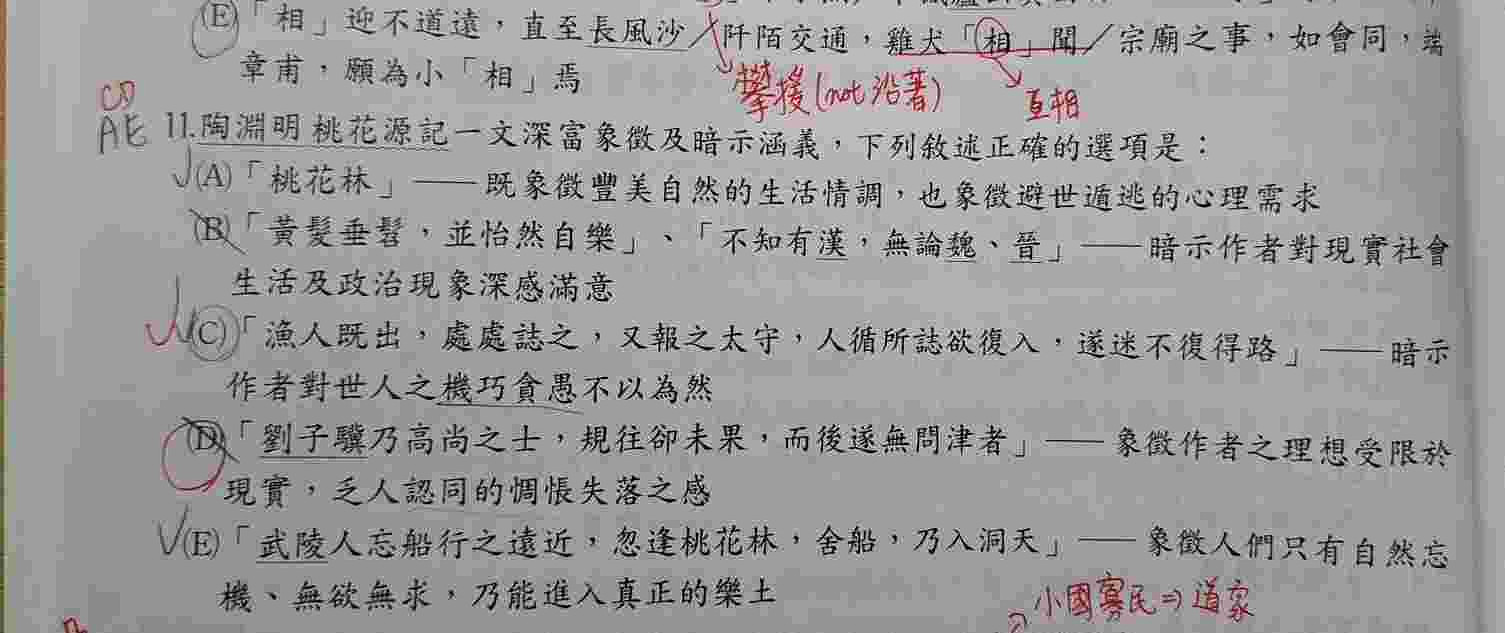 (E)「相」迎不道遠，直至長風沙／阡陌交通，雞犬「相」聞／宗廟之事，如會同，端
章甫，願為小「相」焉
攀援(not沿著)
互相
CD
AE
11.陶淵明桃花源記一文深富象徵及暗示涵義，下列敘述正確的選項是：
(A)「桃花林」——既象徵豐美自然的生活情調，也象徵避世遁逃的心理需求
(B)「黃髮垂髫，並怡然自樂」、「不知有漢，無論魏、晉」——暗示作者對現實社會
生活及政治現象深感滿意
(C)「漁人既出，處處誌之，又報之太守，人循所誌欲復入，遂迷不復得路」——暗示
作者對世人之機巧貪愚不以為然
(D)「劉子驥乃高尚之士，規往卻未果，而後遂無問津者」——象徵作者之理想受限於
現實，乏人認同的惆悵失落之感
(E)「武陵人忘船行之遠近，忽逢桃花林，舍船，乃入洞天」——象徵人們只有自然忘
機、無欲無求，乃能進入真正的樂土
小國寡民⇒道家